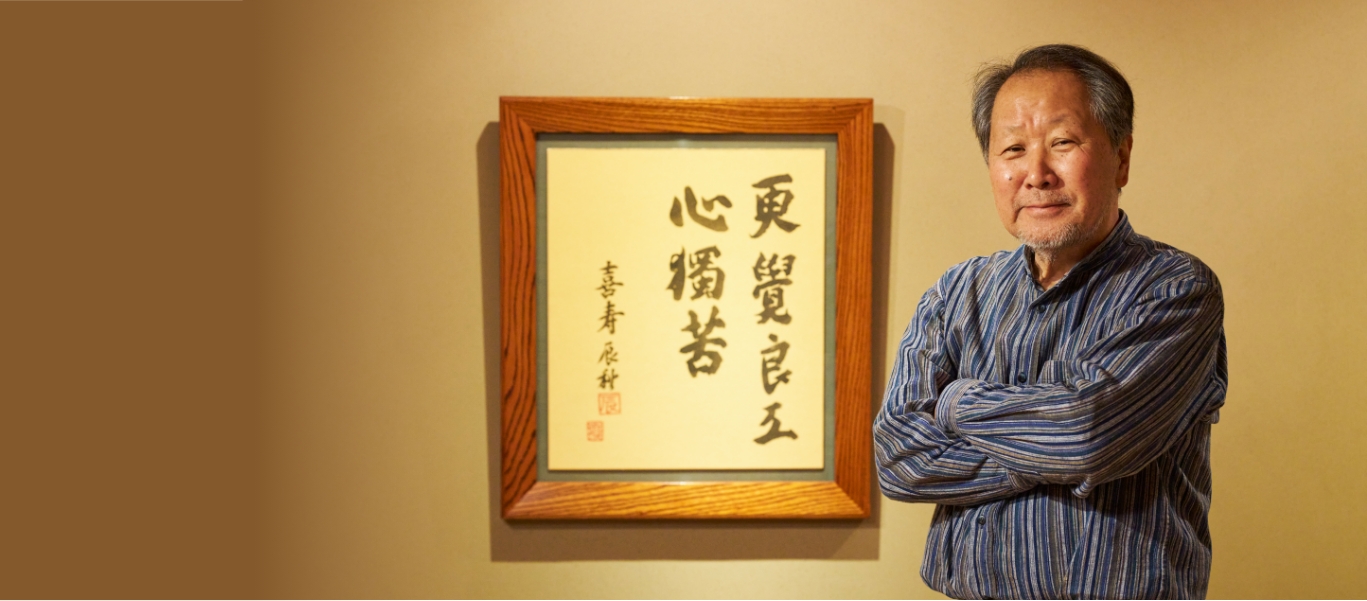 更覺良工
心獨苦
喜寿 辰村